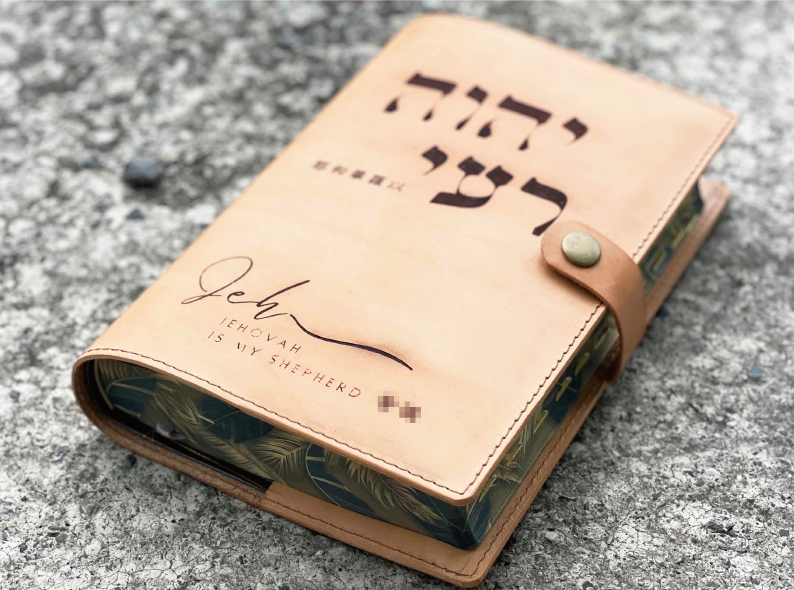 יהוה
רעי
耶和華羅以
Jeh
JEHOVAH
IS MY SHEPHERD